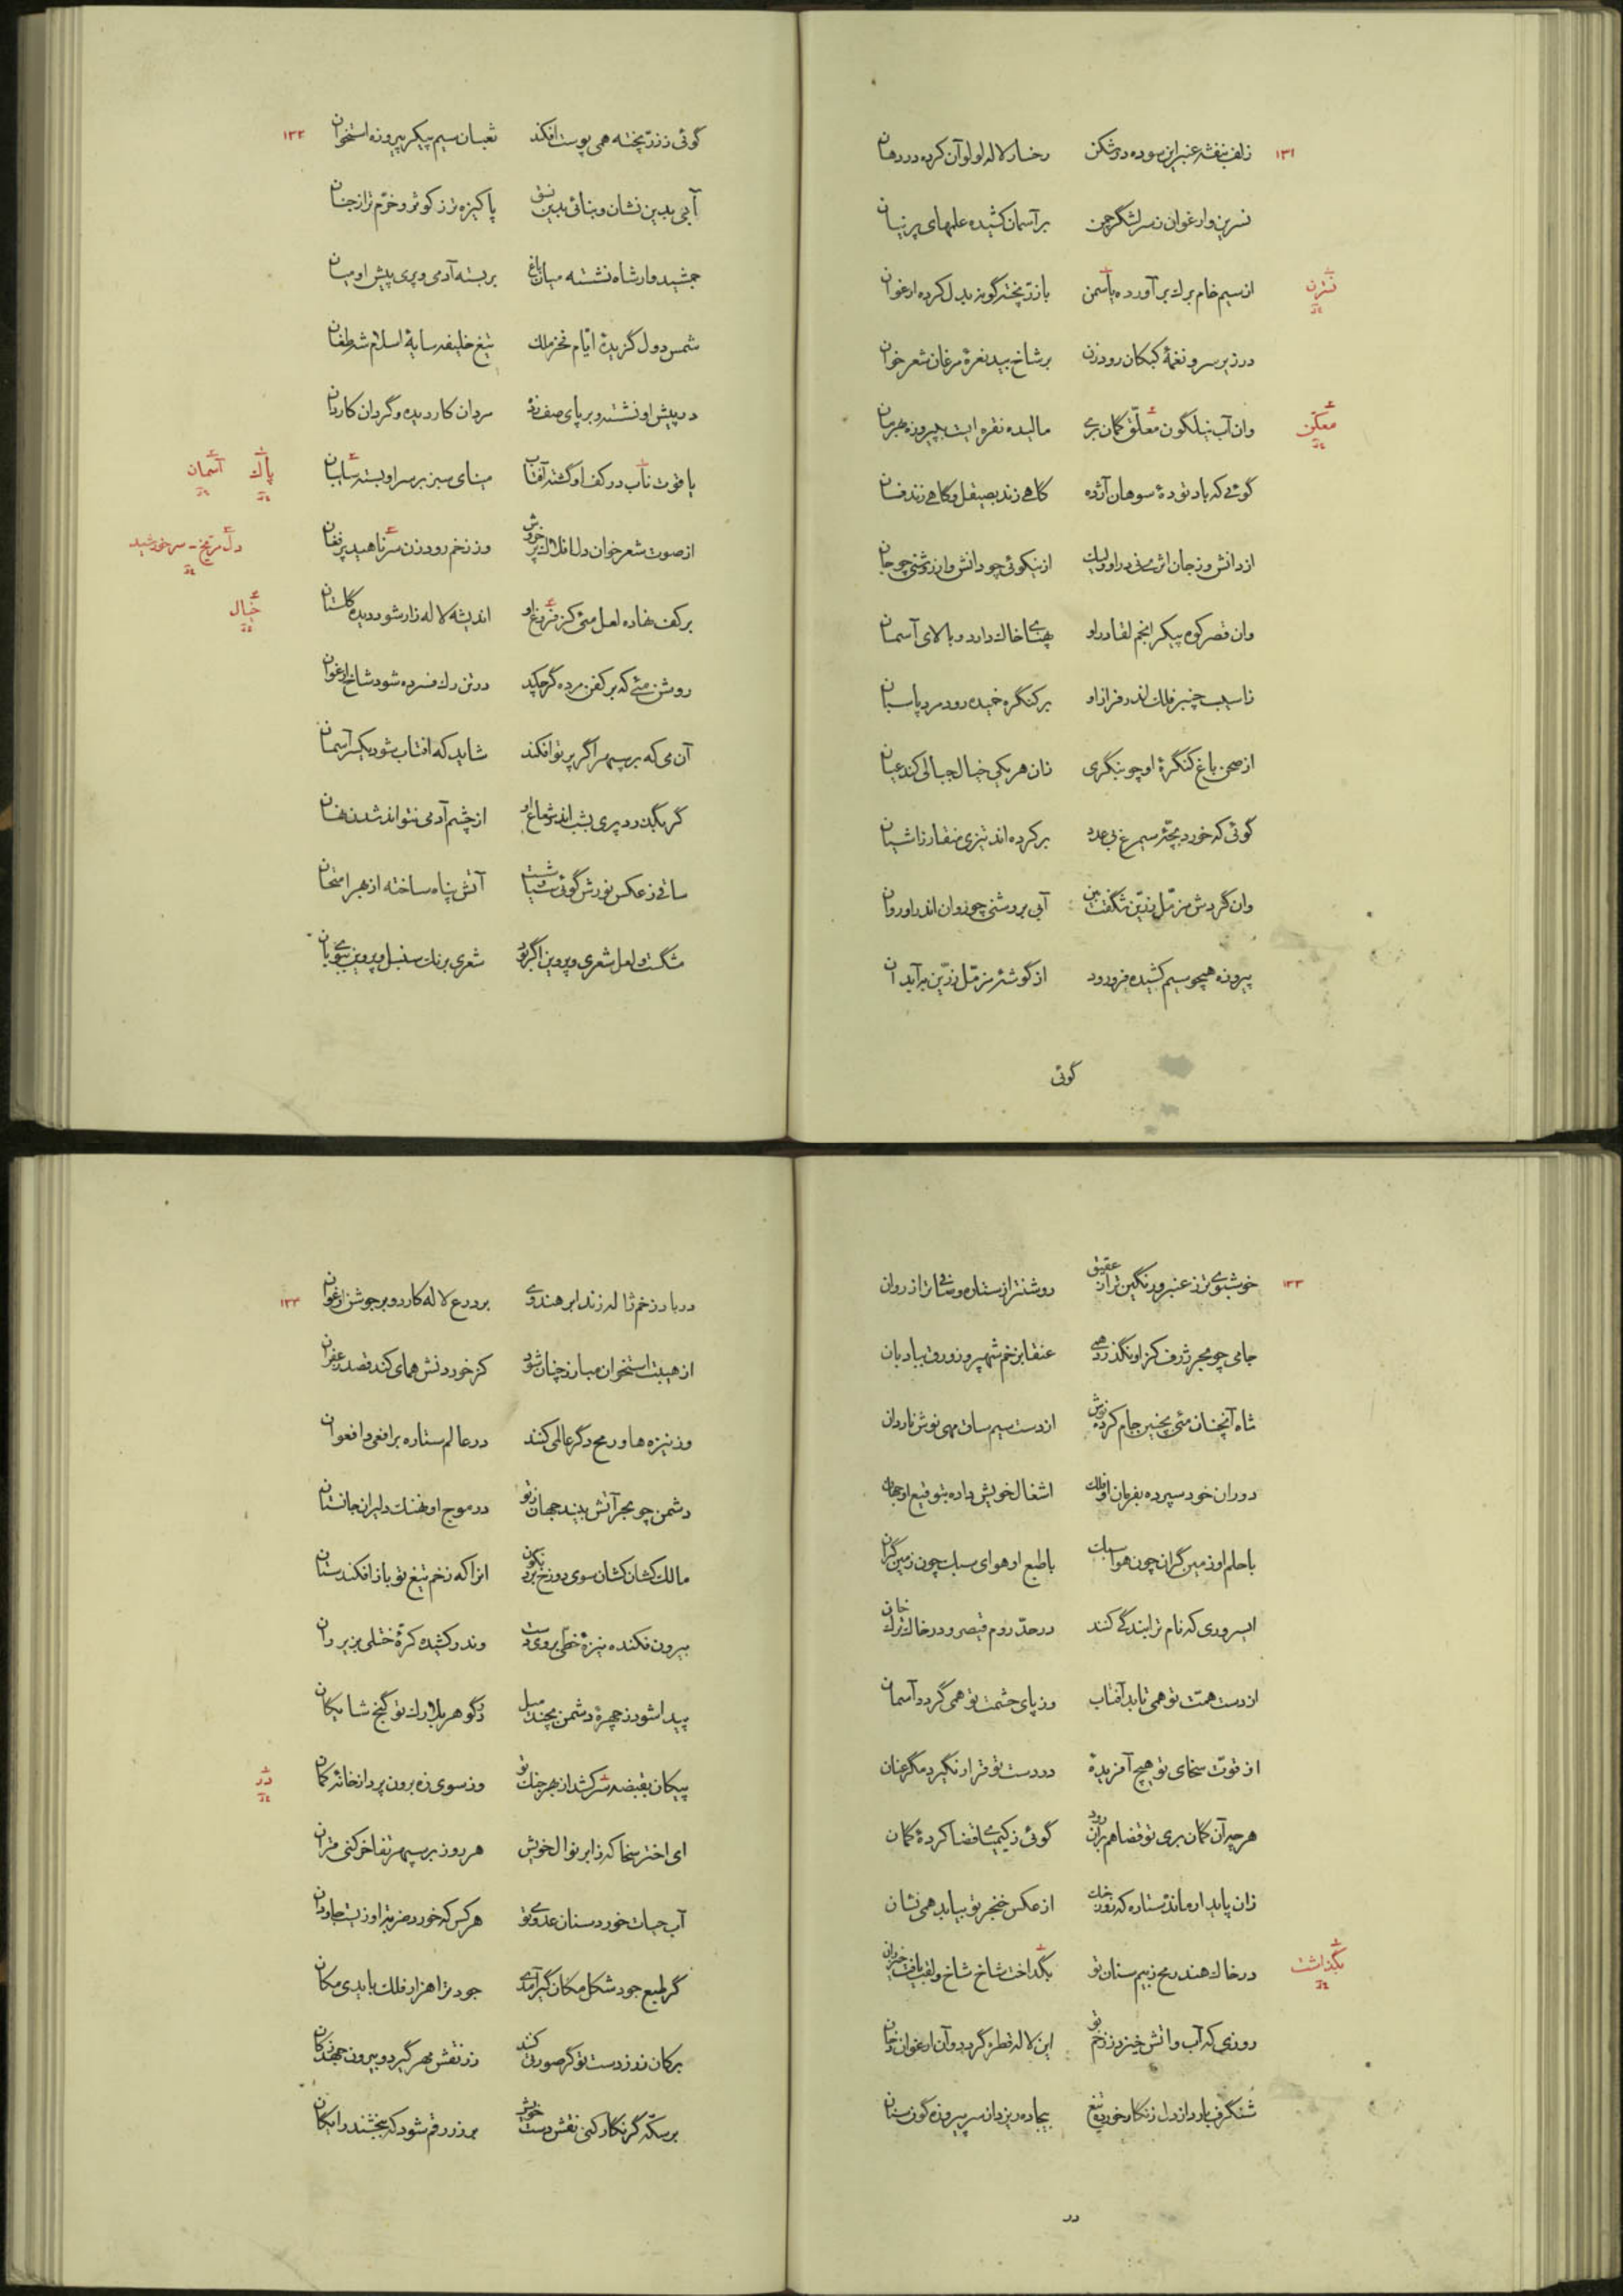 ۱۳۱
زلف بنفشه عنبر این سوده در شکن رخسار لاله لولو آن کرده در دهان
نسرین و ارغوان ز سر لشگر چمن بر آسمان کشیده علمهای پرنیان
از سیم خام برك بر آورده یاسمن با زرّ پخته گونه بدل کرده ارغوان
نسترن
در زیر سرو نغمهٔ کبکان رود زن بر شاخ بید نعرهٔ مرغان شعر خوان
وان آب نیلگون معلّق گمان بری مالیده نقره ایست به پیروزه بهرمان
گوئی که باد تودهٔ سوهان آژده کاهی زند بصیقل و کاهی زند فسان
از دانش و ز جان اثری نی در او ولیك از نیکوئی چو دانش و از روشنی چو جان
وان قصر کوه پیکر انجم لقا در او پهنای خاك دارد و بالای آسمان
ز آسیب چنبر فلك اندر فراز او بر کنگره خمیده رود مرد پاسبان
از صحن باغ کنگرهٔ او چو بنگری زان هر یکی خیال جبالی کند عیان
گوئی که خورد بچّهٔ سیمرغ بی عدد بر کرده اند تیزی منقار ز آشیان
وان گردش مزمّل زرّین شگفت بین آبی بروشنی چو روان اندر او روان
پیروزه همچو سیم کشیده فرو رود از گوشهٔ مزمّل زرّین بر آید آن
گوئی
۱۳۲
گوئی ز زرّ پخته همی پوست افکند ثعبان سیم پیکر پیروزه استخوان
آبی بدین نشان و بنائی بدین نسق پاکیزه تر ز کوثر و خرّم تر از جنان
جمشید وار شاه نشسته میان باغ بربسته آدمی و پری پیش او میان
شمس دول گزیدهٔ ایّام فخر ملك تیغ خلیفه سایهٔ اسلام شه طغان
در پیش او نشسته و بر پای صف زده مردان کاردیده و گردان کاردان
یاقوت ناب در کف او گشته آفتاب مینای سبز بر سر او بسته سایبان
پاك آسمان
از صوت شعر خوان دل افلاك پر خروش وز زخم رود زن سر ناهید پر فغان
دل مریخ - سر خورشید
بر کف نهاده لعل مئی کز فروغ او اندیشه لاله زار شود دیده گلستان
خیال
روشن مئی که بر کفن مرده گر چکید در تن رك فسرده شود شاخ ارغوان
آن می که بر سپهر اگر پرتو افکند شاید که افتاب شود یکسر آسمان
گر بگذرد پری بشب اندر شعاع او از چشم آدمی نتواند شدن نهان
ساقی ز عکس نورش گوئی سیاوشست آتش پناه ساخته از بهر امتحان
مشگست و لعل شعری و پروین اگر بود شعری برنك سنبل و پروین ببوی بان
۱۳۳
خوشبوی تر ز عنبر و رنگین تر از عقیق روشنتر از ستاره و صافی تر از روان
جامی چو بحر ژرف کز او نگذرد همی عنقا بزخم شهپر و زورق ببادبان
شاه آنچنان مئی بچنین جام کرده نوش از دست سیم ساق مهی نوش ناردان
دوران خود سپرده بفرمان او فلك اشغال خویش داده بتوقیع او جهان
با حلم او زمین گران چون هوا سبك با طبع او هوای سبك چون زمین گران
ای سروری که نام ترا بندگی کنند در حدّ روم قیصر و در خاك ترك خان
از دست همّت تو همی تابد آفتاب وز پای حشمت تو همی گردد آسمان
از قوّت سخای تو هیچ آفریدهٔ در دست تو قرار نگیرد مگر عنان
هر چیز آن گمان بری تو قضا هم بر آن رود گوئی ز کیمیای قضا کردهٔ گمان
از عکس خنجر تو بیابد همی نشان
در خاك هند رمح ز بیم سنان تو بگداخت شاخ شاخ و لقب یافت خیزران
بگذاشت
روزی که آب و اتش خیزد ز زخم تو این لاله قطره گردد و آن ارغوان دخان
شنگرف بارد از دل زنگار خورده تیغ بیجاده ریزد از سر پیروزه گون سنان
در
۱۳۴
در بارد زخم ژاله زند ابر هندوی بر درع لاله کارد و بر جوشن ارغوان
از هیبت استخوان مبارز چنان شود کز خوردنش همای کند قصد زعفران
وز نیزه ها و رمح دگر عالمی کنند در عالم ستاره بر افعی و افعوان
دشمن چو بحر آتش بیند جهان ز تو در موج او نهنك دلیران جانستان
مالك کشان کشان سوی دوزخ برد نگون انرا که زخم تیغ تو باز افکند ستان
بیرون فکنده نیزهٔ خطّی بروی دست وندر کشیده کرّهٔ ختلی بزیر ران
پیدا شود ز چهرهٔ دشمن بچند میل ز گوهر بلارك تو گنج شایگان
پیکان بقبضه سر کشد از بهر جنك تو وز سوی زه برون پرد از خانهٔ کمان
در
ای اختر سخا که ز ابر نوال خویش هر روز بر سپهر تفاخر کنی قران
آب حیات خورد سنان عدوی تو هر کس که خورد ضربت او زیست جاودان
گر طبع جود شکل مکان گیر آمدی جود ترا هزار فلك بایدی مکان
بر کان زر ز دست تو گر صورتی کنند زر نقش مهر گیرد و بیرون جهد ز کان
بر سکّه گر نگار کنی نقش دست خویش بر زر رقم شود که ببخشند رایگان